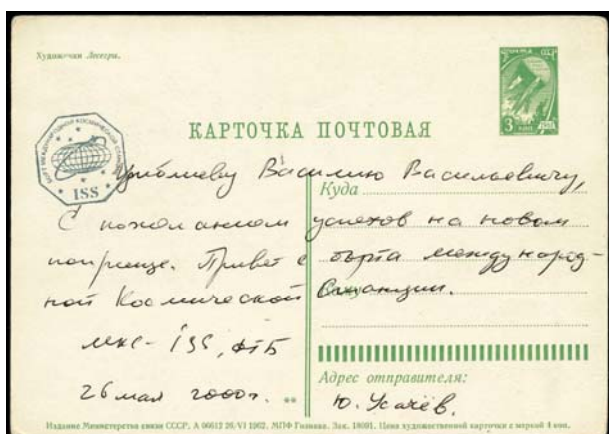 Художник Лесегри.
ПОЧТА СССР
3 КОП
БОРТ МЕЖДУНАРОДНОЙ КОСМИЧЕСКОЙ СТАНЦИИ
ISS
КАРТОЧКА ПОЧТОВАЯ
Циблиеву Василию Васильевичу,
Куда
С пожеланием успехов на новом
поприще. Привет с борта международ-
ной Космической Станции.
мкс - ISS,
26 мая 2000г.
Адрес отправителя:
Ю. Усачёв.
Издание Министерства связи СССР. А 06612 26/VI 1962. МПФ Гознака. Зак. 18091. Цена художественной карточки с маркой 4 коп.